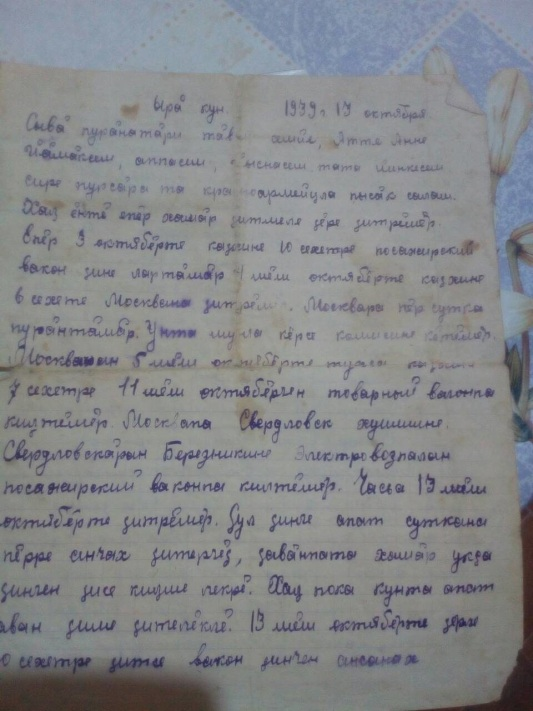 Ырӑ кун. 1939 г 17 октября
Сывӑ пурӑнатӑри тӑван Атте Анне
Йӑмӑксем, аппасем, тата йинкесем
сире пурсӑра та красноармейула пысӑк салам.
Хал ӗнтӗ епӗр хамӑр ҫитмеле ҫӗре ҫитрӗмӗр.
Епӗр 3 октябӗрте каҫхине 10 сехетре посажирский
вакон ҫине лартӑмӑр 4 мӗш октябӗрте каҫхине
6 сехете Москвана ҫитрӗмӗр. Москвара пӗр сутка
пурӑнтӑмӑр. Унта мунча кӗрсе комисине
Москваран 5 мӗш октябӗрте тухса каҫхине
7 сехетре 11 мӗш октябӗрччен товарный вагонпа
килтӗмӗр. Москвапа Свердловск хушшине.
Свердловскӑран Березникине электровозпалан
посажирский ваконпа килтӗмӗр. Часа 13 мӗш
октябӗрте ҫитрӗмӗр. Ҫул ҫинче апат суткана
пӗрре анчах ҫитерчӗҫ, ҫавӑнпата хамӑр укҫа
ҫинчен ҫисе килме лекрӗ. Хал пока кунта апат
аван ҫиме ҫителӗклӗ. 13 мӗш октябӗрте ҫӗрле
10 сехетре ҫитсе вакон ҫинчен ансанах